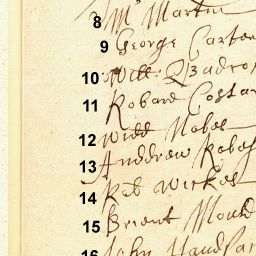 8 Mr Martin
9 George Carter
10 Will: Bradfo
11 Robard Costa
12 Widd Nobes
13 Anddrew Robes
14 Rob Wickes
15 Brient Mould
16 John Handsa